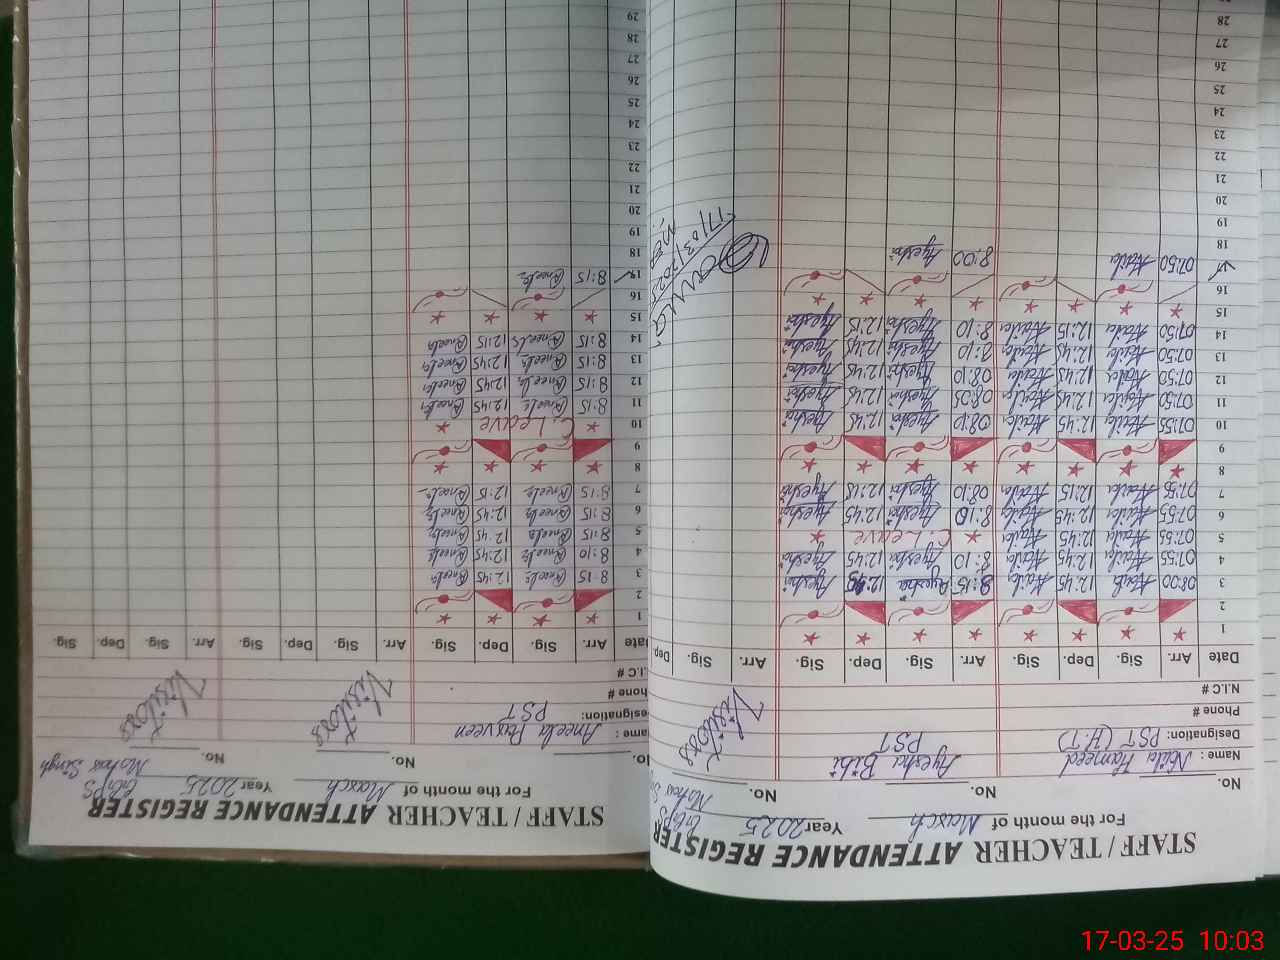 STAFF / TEACHER ATTENDANCE REGISTER
For the month of March Year 2025 GGPS
No. No. No. Mohar S
Name : Naila Hameed Ayesha Bibi Visitors
Designation: PST (H.T) PST
Phone #
N.I.C #
Date Arr. Sig. Dep. Sig. Arr. Sig. Dep. Sig. Arr. Sig. Dep.
1
2
3 08:00 Naila 12:45 Naila 8:15 Ayesha 12:45 Ayesha
4 07:55 Naila 12:45 Naila 8:10 Ayesha 12:45 Ayesha
5 07:55 Naila 12:45 Naila C. Leave
6 07:55 Naila 12:45 Naila 8:10 Ayesha 12:45 Ayesha
7 07:55 Naila 12:15 Naila 08:10 Ayesha 12:15 Ayesha
8
9
10 07:55 Naila 12:45 Naila 08:10 Ayesha 12:45 Ayesha
11 07:50 Naila 12:45 Naila 08:05 Ayesha 12:45 Ayesha
12 07:50 Naila 12:45 Naila 08:10 Ayesha 12:45 Ayesha
13 07:50 Naila 12:45 Naila 8:10 Ayesha 12:45 Ayesha
14 07:50 Naila 12:15 Naila 8:10 Ayesha 12:15 Ayesha
15
16
17 07:50 Naila 8:00 Ayesha
17/03/2025
18
19
20
21
22
23
24
25
26
27
28
STAFF / TEACHER ATTENDANCE REGISTER
For the month of March Year 2025 GGPS
No. No. No. Mohar Singh
Name : Aneela Parveen Visitors Visitors
Designation: PST
Phone #
N.I.C #
Date Arr. Sig. Dep. Sig. Arr. Sig. Dep. Sig. Arr. Sig. Dep. Sig.
1
2
3 8:15 Aneela 12:45 Aneela
4 8:10 Aneela 12:45 Aneela
5 8:15 Aneela 12:45 Aneela
6 8:15 Aneela 12:45 Aneela
7 8:15 Aneela 12:15 Aneela
8
9
10 C. Leave
11 8:15 Aneela 12:45 Aneela
12 8:15 Aneela 12:45 Aneela
13 8:15 Aneela 12:45 Aneela
14 8:15 Aneela 12:15 Aneela
15
16
17 8:15 Aneela
18
19
20
21
22
23
24
25
26
27
28
29
17-03-25 10:03